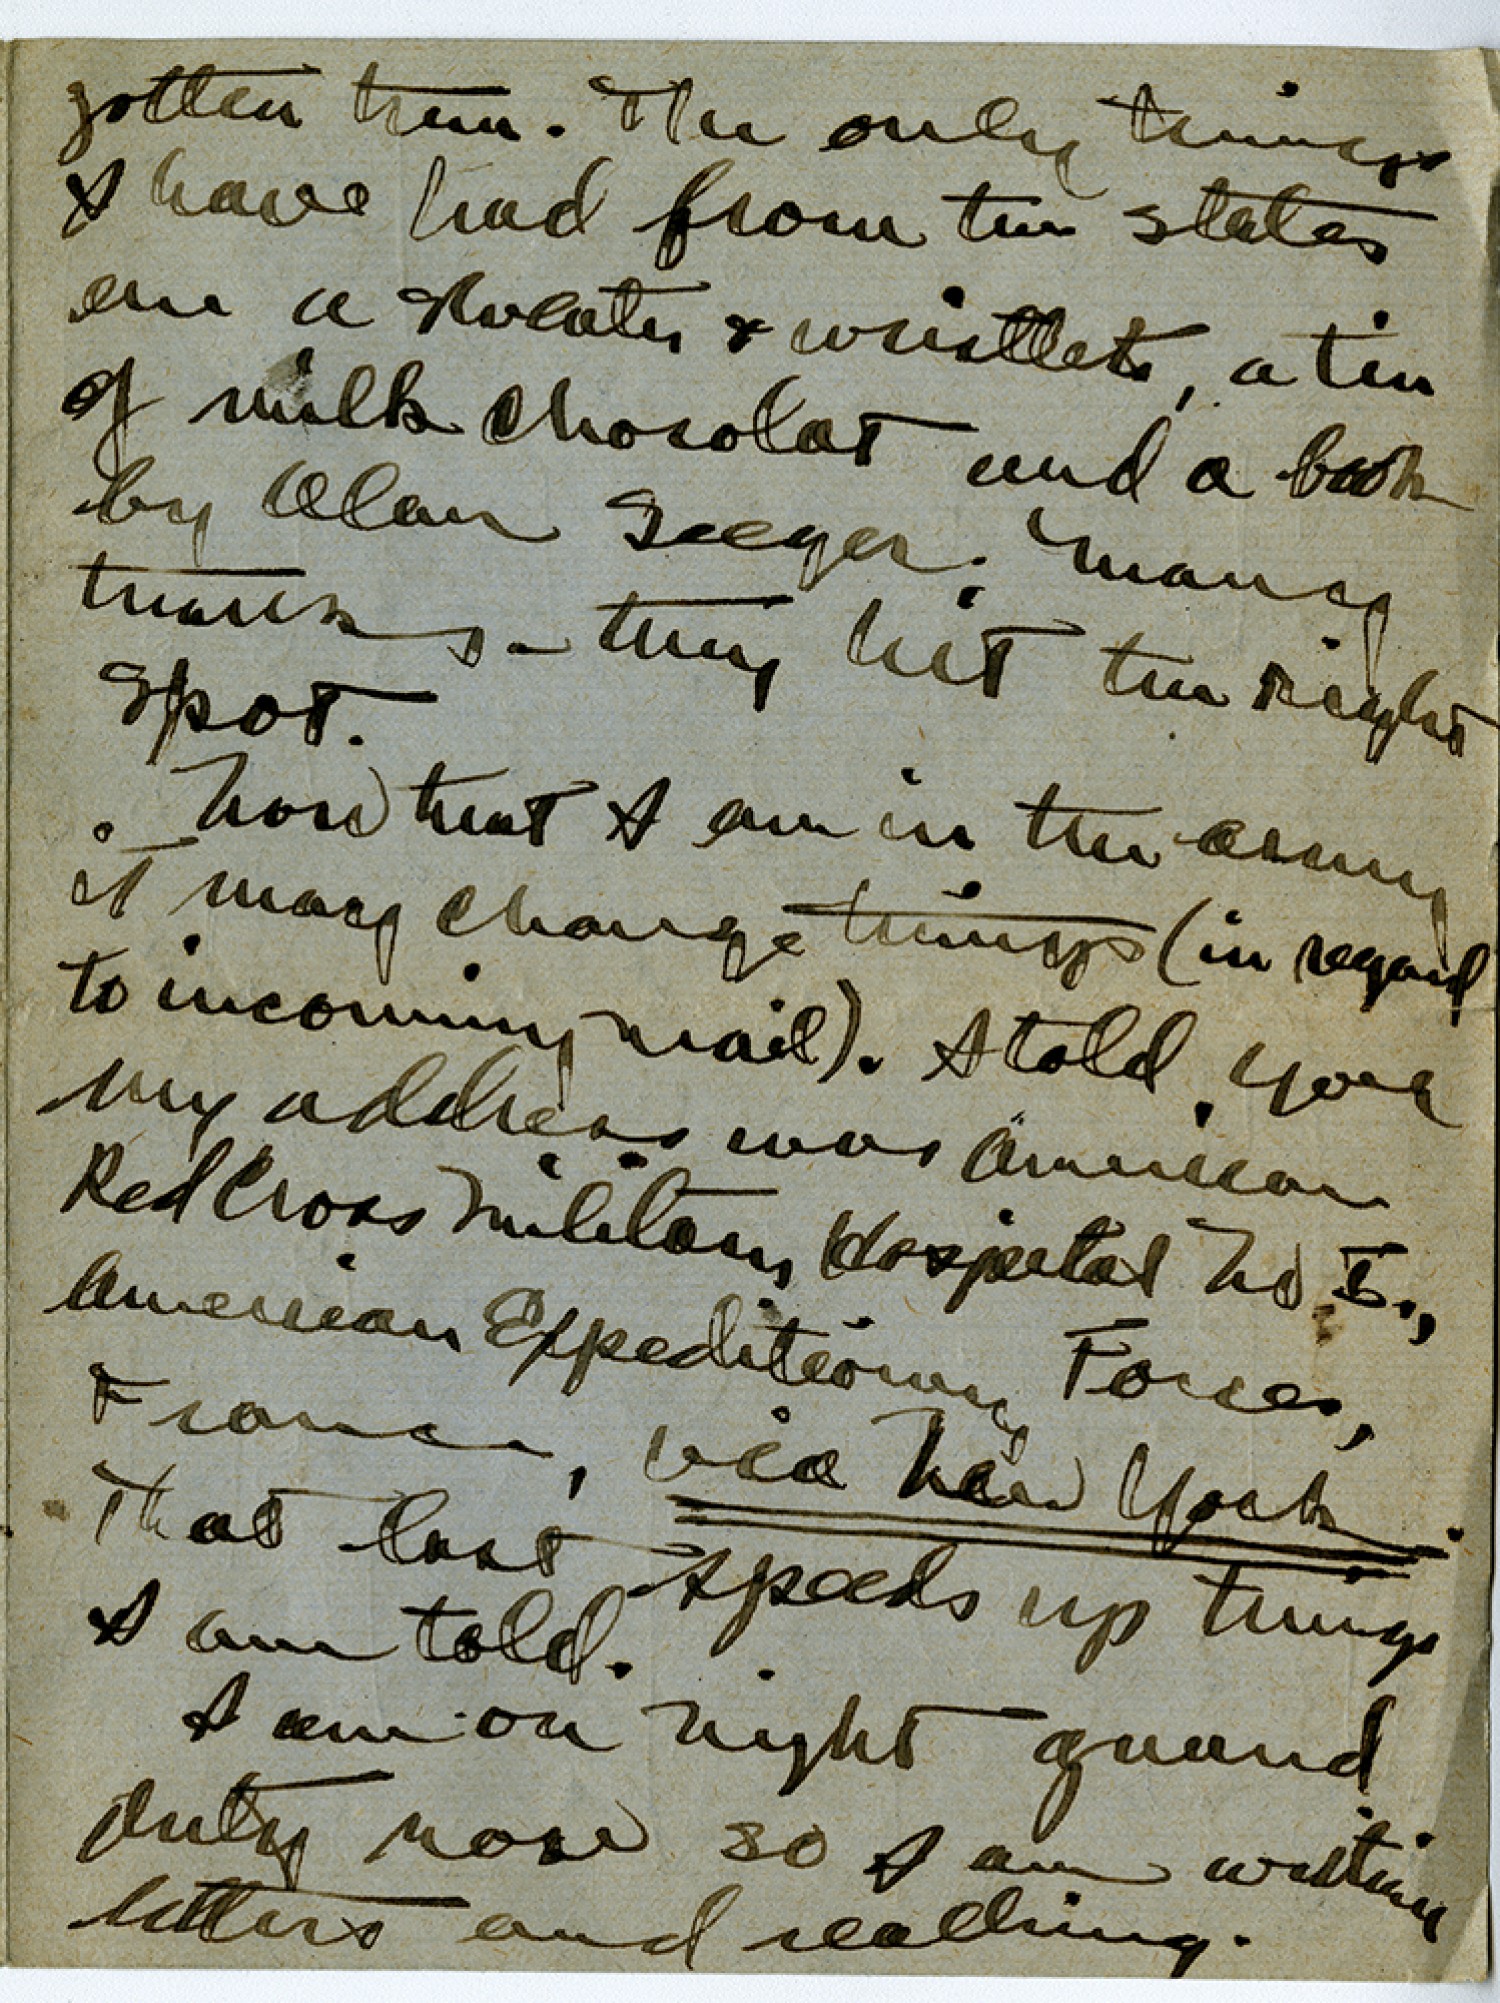 gotten them. The only things
I have had from the states
are a sweater & wristlets, a tin
of milk chocolat and a book
by Alan Seeger. Many
thanks - they hit the right
spot.
Now that I am in the army
it may change things (in regard
to incoming mail). I told you
my address was American
Red Cross Military Hospital No 1.,
American Expeditionary Forces,
France, via New York.
That last speeds up things
I am told.
I am on night guard
duty now so I am writing
letters and reading.